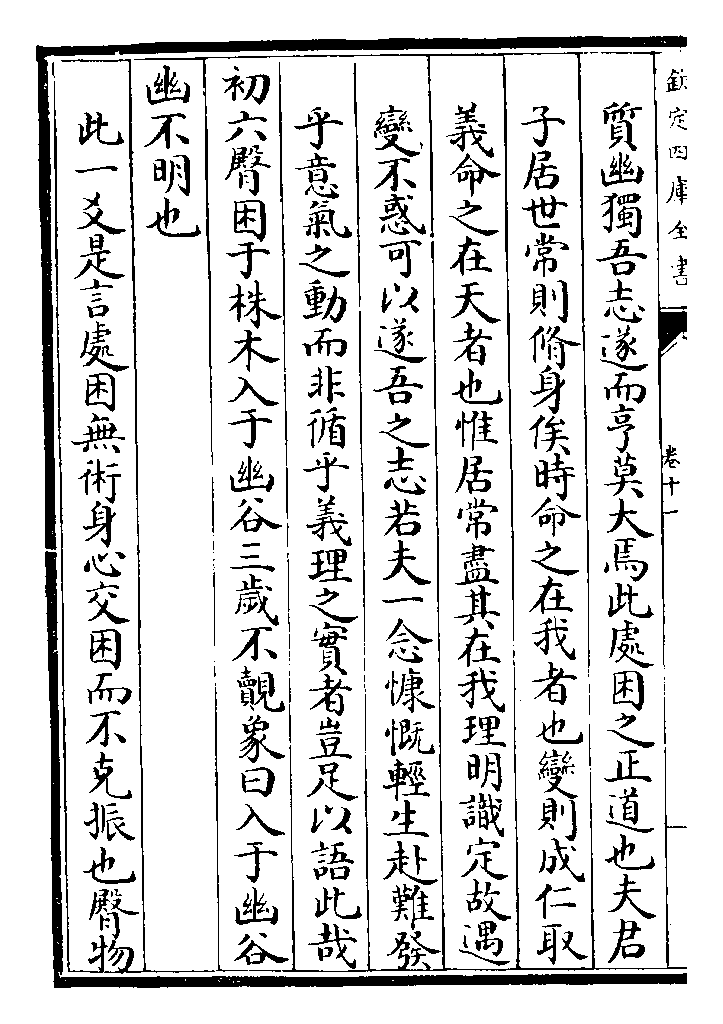 欽定四庫全書
卷十一
質幽獨吾志遂而亨莫大焉此處困之正道也夫君
子居世常則脩身俟時命之在我者也變則成仁取
義命之在天者也惟居常盡其在我理明識定故遇
變不惑可以遂吾之志若夫一念慷慨輕生赴難發
乎意氣之動而非循乎義理之實者豈足以語此哉
初六臀困于株木入于幽谷三歲不覿象曰入于幽谷
幽不明也
此一爻是言處困無術身心交困而不克振也臀物